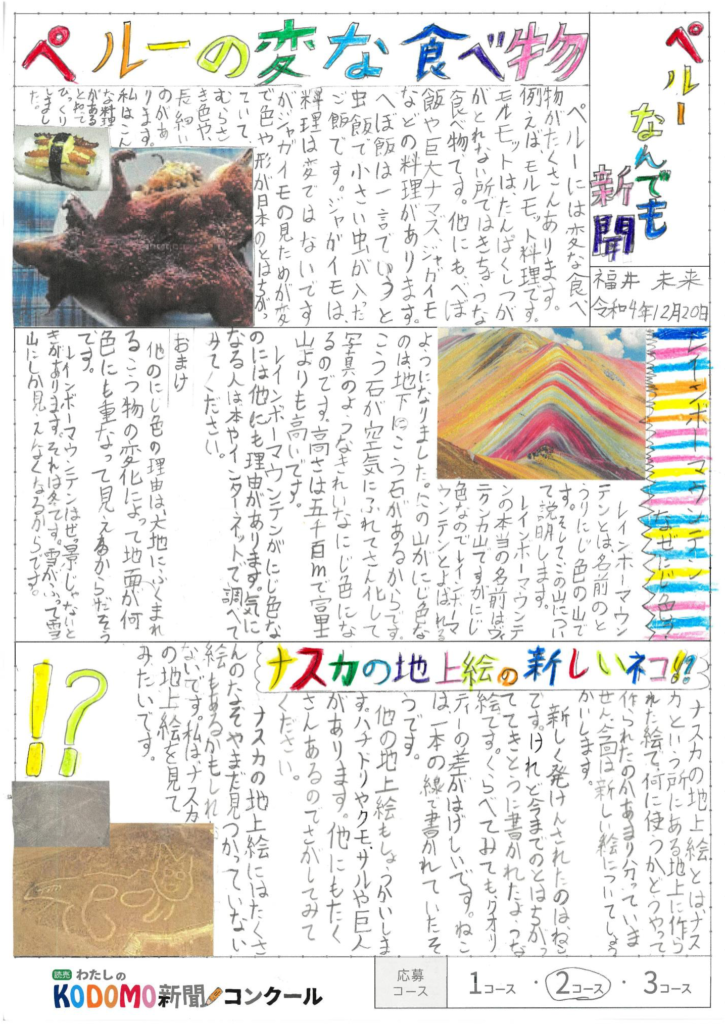 ペルーなんでも新聞
福井 未来
令和4年12月20日
ペルーの変な食べ物
ペルーには変な食べ
物がたくさんあります。
例えばモルモット料理です。
モルモットは、たんぱくしつが
とれない所ではきちょうな
食べ物です。他にもへぼ
飯や巨大ナマズ、ジャガイモ
などの料理があります。
へぼ飯は一言でいうと
虫飯で小さい虫が入った
ご飯です。ジャガイモは、
料理は変ではないです
がジャガイモの見ためが変
で色や形が日本のとはちがっ
ていて、
むらさ
き色や、
長細い
のがあ
ります。
私はこん
な料理
がある
とわかって
びっくり
しまし
た。
レインボーマウンテン
なぜにじ色?
レインボーマウン
テンとは名前のと
うりにじ色の山で
す。そしてこの山につい
て説明します。
レインボーマウンテ
ンの本当の名前は、ヴィ
ニクンカ山ですがにじ
色なのでレインボーマ
ウンテンとよばれる
ようになりました。この山がにじ色な
のは地下にこう石があるからです。
こう石が空気にふれてさん化して
写真のようなきれいなにじ色にな
るのです。高さは五千百mで富士
山よりも高いです。
レインボーマウンテンがにじ色な
のには他にも理由があります。気に
なる人は本やインターネットで調べて
みてください。
おまけ
他のにじ色の理由は大地にふくまれ
るこう物の変化によって地面が何
色にも重なって見えるからだそう
です。
レインボーマウンテンはぜっ景じゃないと
きがあります。それは冬です。雪がふって雪
山にしか見えなくなるからです。
ナスカの地上絵の新しいネコ!!
ナスカの地上絵とはナス
カという所にある地上に作ら
れた絵で、何に使うかどうやって
作られたのかあまり分っていま
せん。今回は新しい絵についてしょう
かいします。
新しく発けんされたのは、ねこ
です。けれど今までのとはちがっ
ててきとうに書かれたような
絵です。くらべてみてもクオリ
ティーの差がはげしいです。ねこ
は、一本の線で書かれていたそ
うです。
他の地上絵もしょうかいしま
す。ハチドリやクモ、サルや巨人
があります。他にもたく
さんあるのでさがしてみて
ください。
ナスカの地上絵にはたくさ
んのなぞやまだ見つかっていない
絵もあるかもしれ
ないです。私は、ナスカ
の地上絵を見て
みたいです。
!?
読売 わたしの
KODOMO新聞コンクール
応募コース
1コース・2コース・3コース